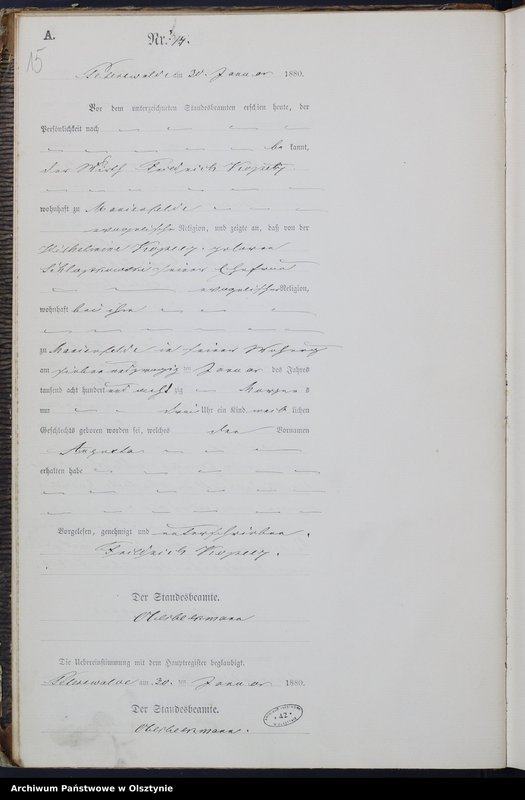 A.
Nr. 14.
15
am 30. Januar 1880.
Vor dem unterzeichneten Standesbeamten erschien heute, der
Persönlichkeit nach
be kannt,
der Wirth Friedrich
wohnhaft zu Marienfelde
evangelischer Religion, und zeigte an, daß von der
Wilhelmine geboren
seiner Ehefrau
evangelischer Religion,
wohnhaft bei ihm
zu Marienfelde in seiner Wohnung
am sieben und zwanzigsten Januar des Jahres
tausend acht hundert und achtzig Morgens
um drei Uhr ein Kind weib lichen
Geschlechts geboren worden sei, welches den Vornamen
Auguste
erhalten habe
Vorgelesen, genehmigt und unterschrieben.
Friedrich
Der Standesbeamte.
Oberbeckmann
Die Uebereinstimmung mit dem Hauptregister beglaubigt.
am 30. ten Januar 1880.
Der Standesbeamte.
Oberbeckmann.
42
Archiwum Państwowe w Olsztynie